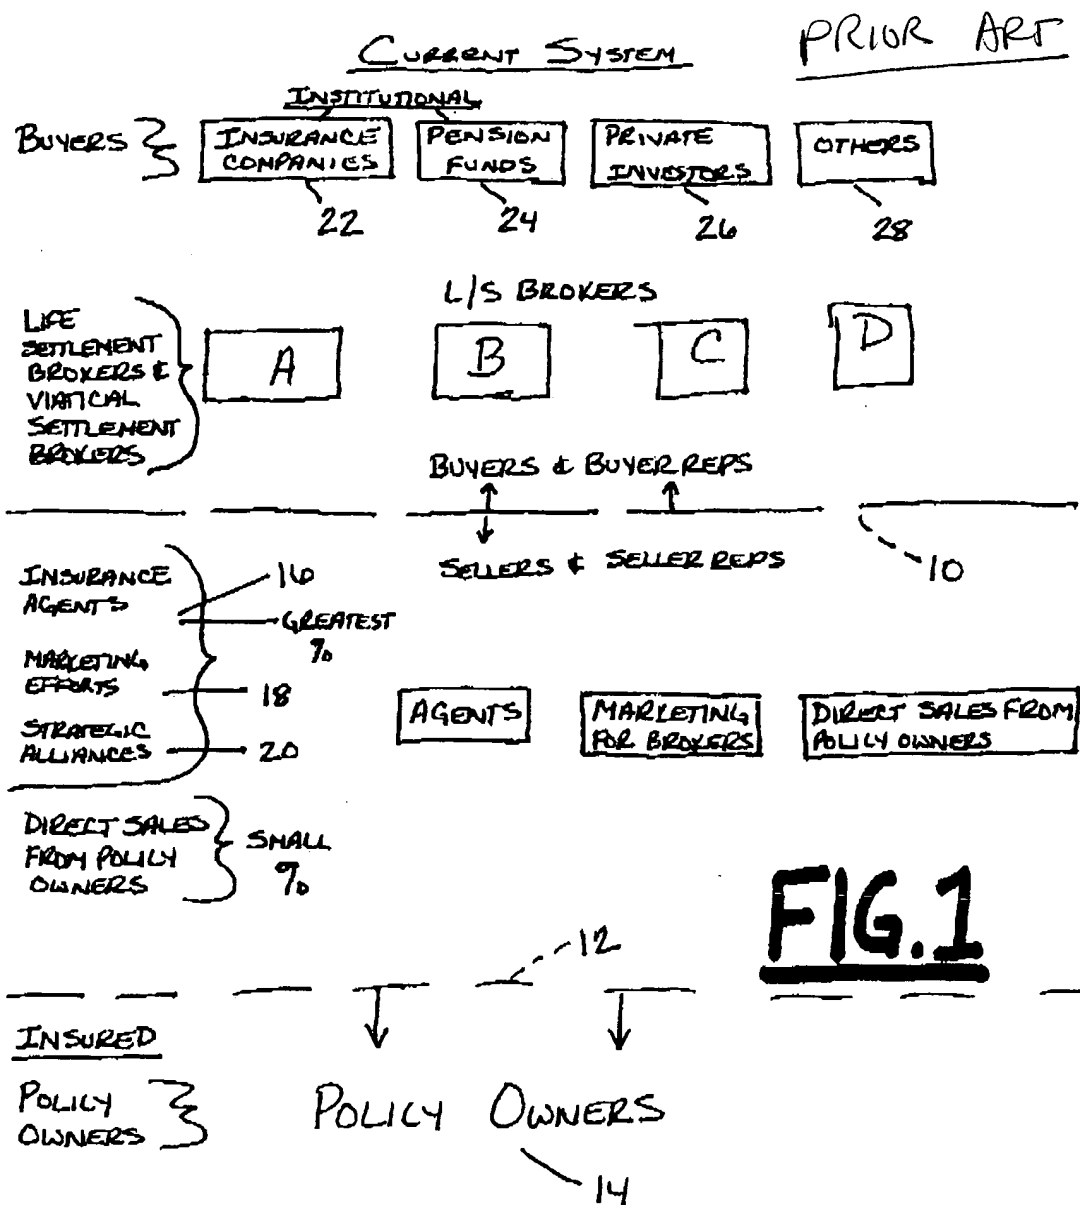 CURRENT SYSTEM
PRIOR ART
INSTITUTIONAL
BUYERS
INSURANCE
COMPANIES
PENSION
FUNDS
PRIVATE
INVESTORS
OTHERS
22
24
26
28
L/S BROKERS
LIFE
SETTLEMENT
BROKERS &
VIATICAL
SETTLEMENT
BROKERS
A
B
C
D
BUYERS & BUYER REPS
SELLERS & SELLER REPS
10
INSURANCE
AGENTS
16
GREATEST
%
MARKETING
EFFORTS
18
STRATEGIC
ALLIANCES
20
AGENTS
MARKETING
FOR BROKERS
DIRECT SALES FROM
POLICY OWNERS
DIRECT SALES
FROM POLICY
OWNERS
SMALL
%
FIG. 1
12
INSURED
POLICY
OWNERS
POLICY OWNERS
14